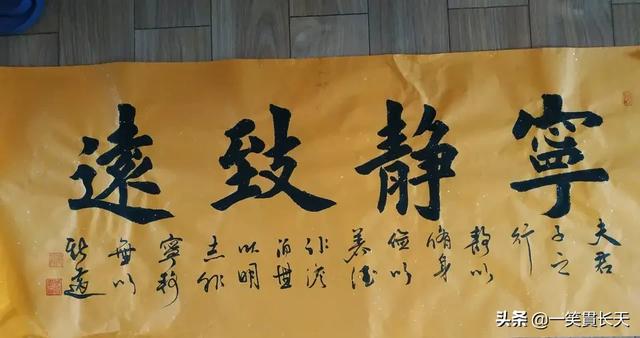 寧静致遠
夫君
子之
行
静以
脩身
儉以
養德
非澹
泊無
以明
志非
寧静
無以
致遠
头条 @一笑貫长天